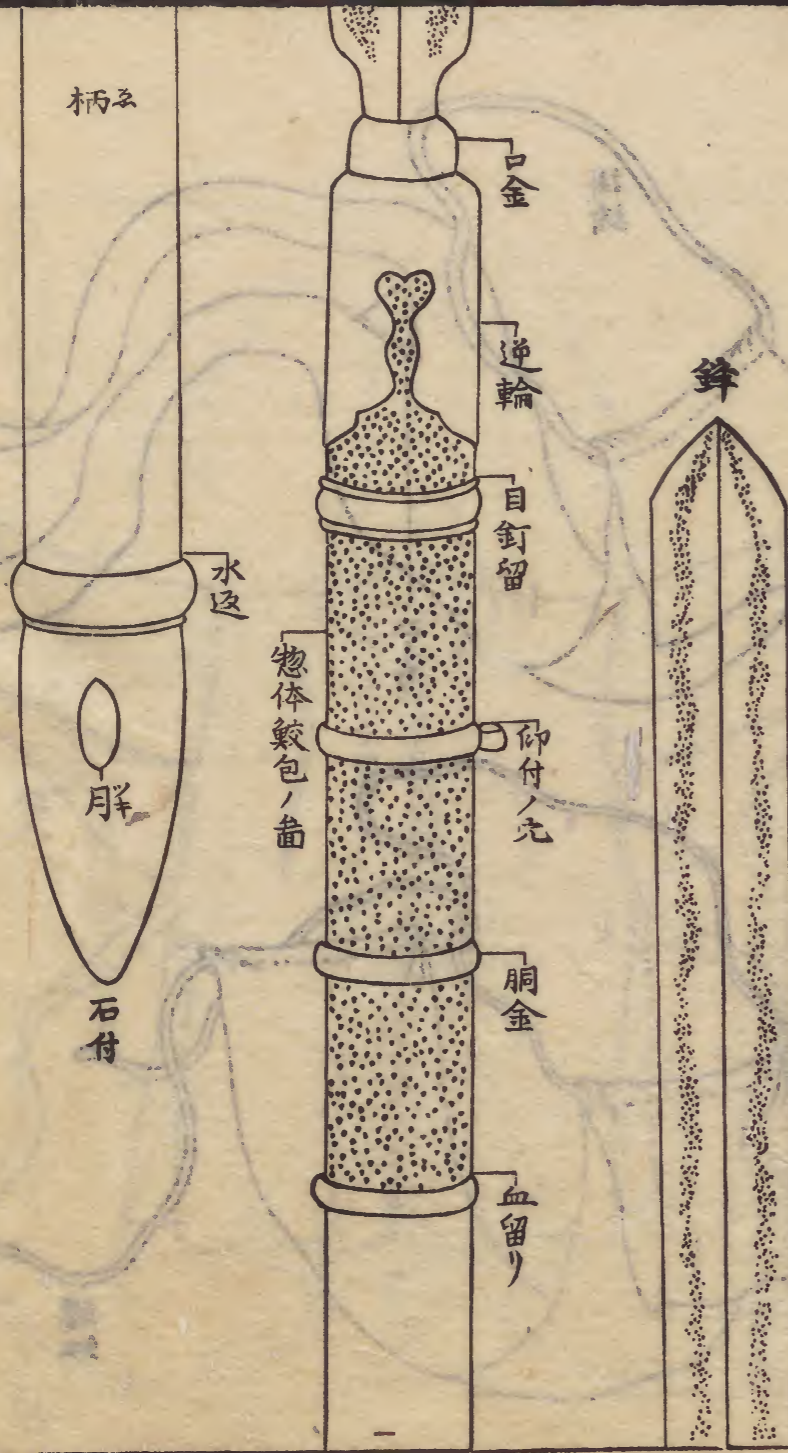 鋒
口金
逆輪
目釘留
仰付ノ穴
胴金
血留リ
惣体鮫包ノ啚
柄ゑ
水返
胖
石付